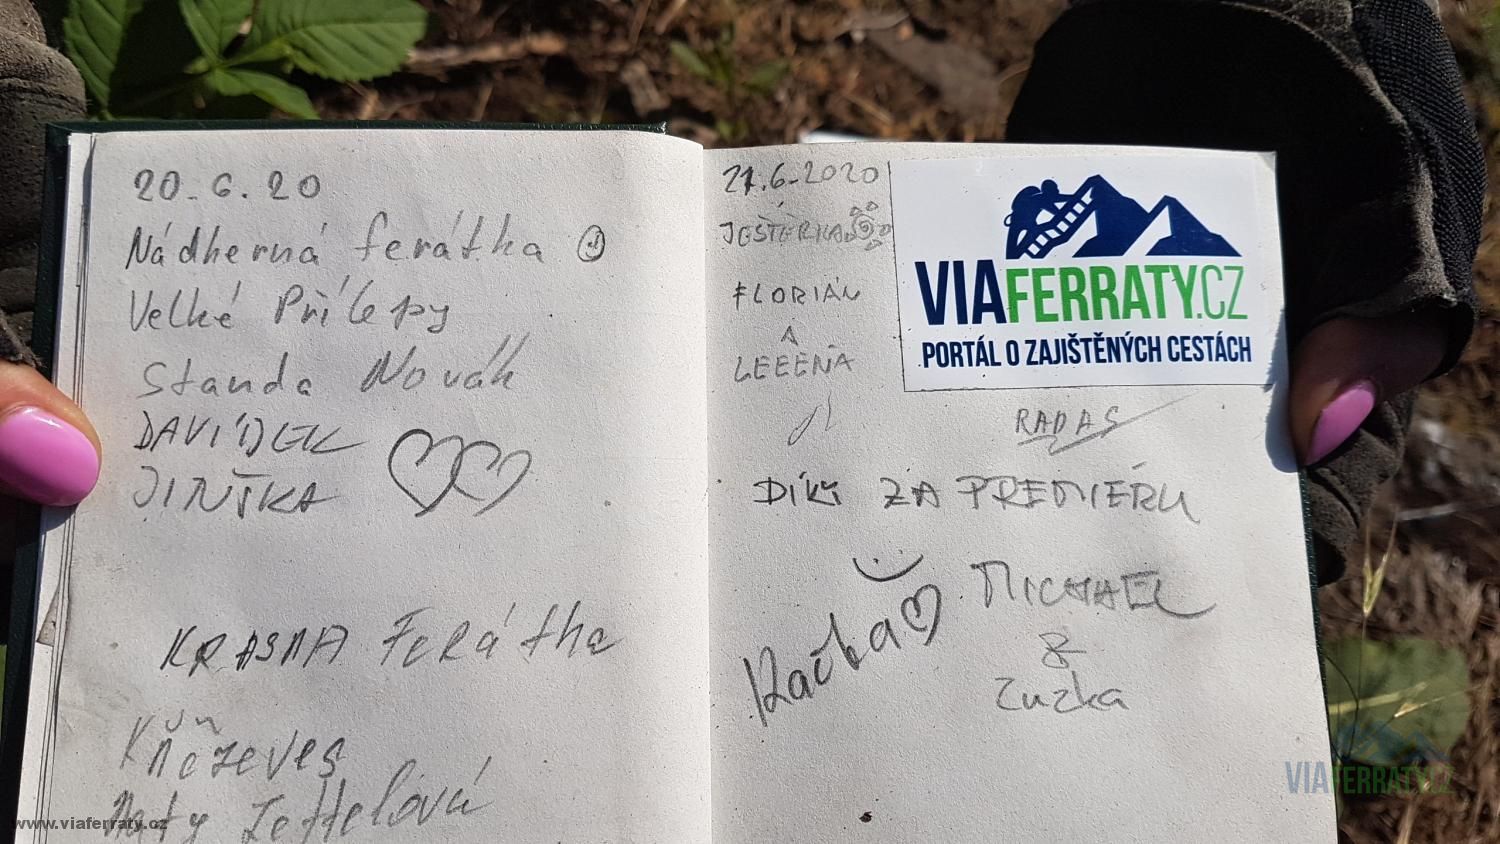 20.6.20
Nádherná ferátka
Velké Přílepy
Standa Novák
DAVÍDEK
JIŘKA
KRASNA Ferátka
Kněževes
Zettelová
21.6.2020
JEŠTĚRKA
FLORIÁN
A
LEEENA
VIAFERRATY.CZ
PORTÁL O ZAJIŠTĚNÝCH CESTÁCH
RADAS
DÍKY ZA PREMIÉRU
Kačka
MICHAEL
&
Zuzka
VIAFERRATY.CZ
www.viaferraty.cz